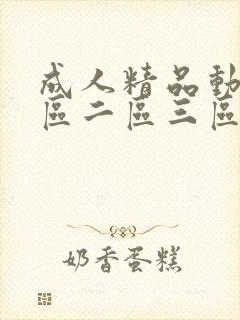 成人精品動
區二區三區
奶香蛋糕